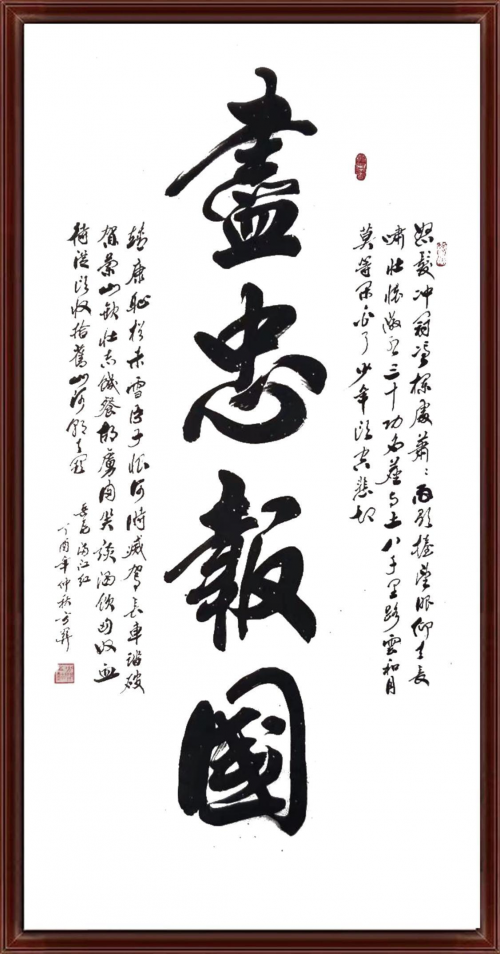 怒髮冲冠凭栏處蕭〻雨歇抬望眼仰天長
嘯壯懷激烈三十功名塵与土八千里路雲和月
莫等闲白了少年頭空悲切
盡忠報國
靖康恥猶未雪臣子恨何時滅駕長車踏破
賀蘭山缺壯志饑餐胡虜肉笑談渴飲匈奴血
待從頭收拾舊山河朝天闕
岳飛滿江红
丁酉年仲秋